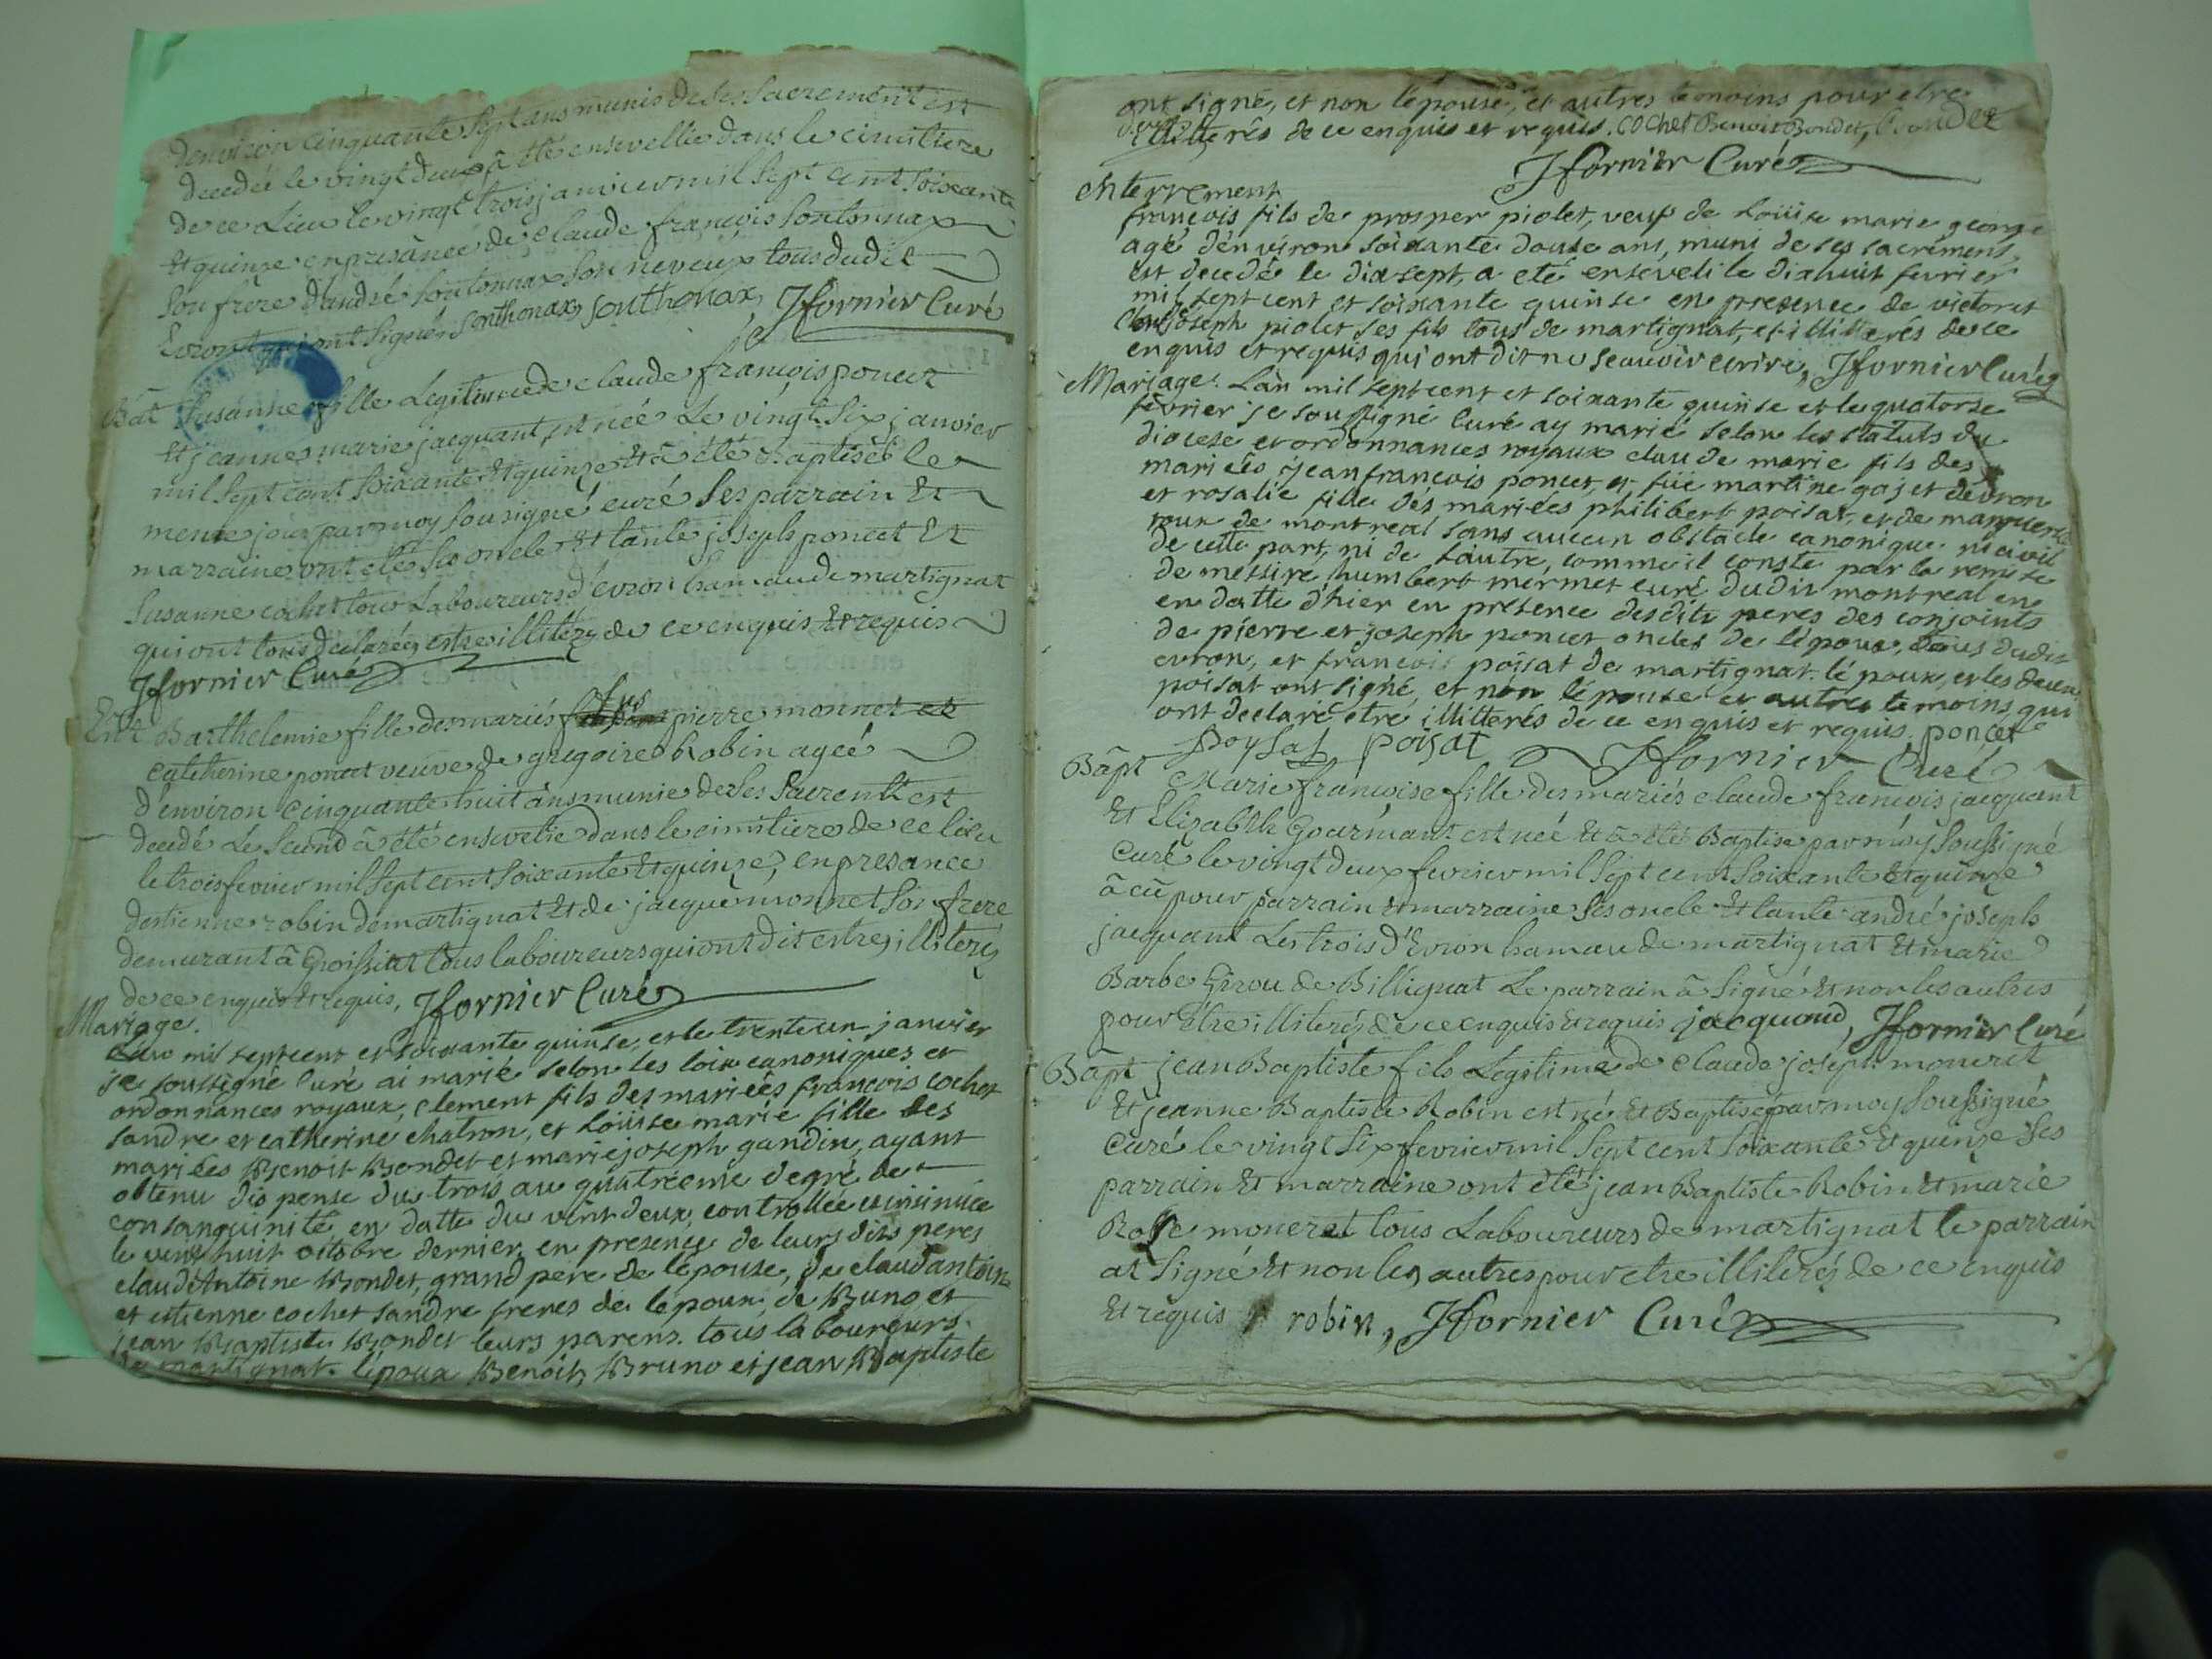 denviron cinquante sept ans munis de ses Sacrement est
decedée le vingt deux â été ensevellie dans le cimitiere
de ce Lieu le vingt trois janvier mil Sept cent Soixante
Et quinze en presance de Claude françois Sontonnax
Son frere d'andré Sontonnax Son neveux tous dudit
Evron qui ont Signés Sonthonax, Sonthonax, Jfornier Curé
Bat Susanne fille Legitime de claude françois poncet
Et jeanne marie jacquant, est née Le vingt Six janvier
mil Sept cent Soixante Et quinze Et â été Baptisée le
meme jour par moy Sousigné curé Ses parrain Et
marraine ont été Sa oncle Et tante joseph poncet Et
Susanne cochet tous Laboureurs d'Evron hamau de martignat
qui ont tous declarés estre illiterés de ce enquis Et requis
Jfornier Curé
Ent Barthelemie fille des mariés feus pierre monnet et
catherine poncet veuve de gregoire Robin agée
d'environ Cinquante huit âns munie de Ses Sacrents est
decedé Le Second â été ensevelie dans le cimitiere de ce lieu
le trois fevrier mil Sept cent Soixante Et quinze, en presance
destienne robin demartignat Et de jacque monnet Son frere
demurant â Groissiat tous laboureurs qui ont dit estres illiterés
de ce enquis Et requis, Jfornier Curé
Mariage.
L'an mil sept cent et soixante quinse, et le trente un janvier
je soussigné Curé ai marié selon les loix canoniques et
ordonnances royaux, clement fils des mariéés françois cochet
sandre et catherine chatron, et Loüise marie fille des
mariées Benoit Bondet et marie joseph gandin, ayant
obtenu dispense du trois au quatriéme degré de
consanguinité en datte du vint deux, controllée et insinuée
le vint huit octobre dernier, en presence de leurs dits peres
claud Antoine Bondet, grand pere de l'épouse, de claud antoine
et estienne cochet sandre freres de l'époux, de Bruno et
jean Baptiste Bondet leurs parens. tous laboureurs.
de martignat. l'époux Benoit, Bruno et jean Baptiste
ont signé, et non lépouse, et autres temoins pour etre
illitterés de ce enquis et requis. cochet Benoit Bondet, bondet
Jfornier Curé
enterrement
françois fils de prosper piolet, veuf de Loüise marie george
agé d'environ soixante douse ans, muni de ses sacrémens,
est decedé le dix sept, a eté enséveli le dix huit fevrier
mil sept cent et soixante quinse en presence de victor et
Claud joseph piolet ses fils tous de martignat, et illitterés de ce
enquis et requis qui ont dit ne scauvoir ecrire, Jfornier Curé
Mariage. L'an mil sept cent et soixante quinse et le quatorse
février je soussigné Curé ay marié selon les statuts du
diocese et ordonnances royaux claude marie fils des
mariéés jean françois poncet, et füe martine gojet d'évron
et rosalie fille dés mariéés philibert poisat, et de marguerite
roux de montreal sans aucun obstacle canonique ni civil
de cette part, ni de l'autre, comme il conste par la remise
de messire humbert mermet curé dudit montreal en
en datte d'hier en présence desdits peres des conjoints
de pierre et joseph poncet oncles de l'époux, tous dudit
evron, et françois poisat de martignat. lé poux, et les deux
poisat ont signé, et non lépouse et autres temoins qui
ont declaré etre illitterés de ce enquis et requis. poncet
Poysat poisat Jfornier Curé
Bâpt Marie françoise fille des mariés claude françois jacquant
Et Elizabeth Gourmant est née Et â été Baptise par moy Soussigné
Curé le vingt deux fevrier mil Sept cent Soixante Et quinze
â eû pour parrain Et marraine Ses oncle Et tante andré joseph
jacquant Les trois d'Evron hamau de martignat Et marie
Barbe Girou de Billignat Le parrain â Signé Et non les autres
pour être illiterés de ce enquis Et requis jacquand, Jfornier Curé
Bâpt jean Baptiste fils Legitime de Claude joseph moneret
Et jeanne Baptiste Robin est né Et Baptisé par moy Soussigné
Curé le vingt Six fevrier mil Sept cent Soixante Et quinze Ses
parrain Et marraine ont été jean Baptiste Robin Et marie
Rose moneret tous Laboureurs de martignat le parrain
at Signé Et non les autres pour etre illiterés de ce enquis
Et requis robin, Jfornier Curé